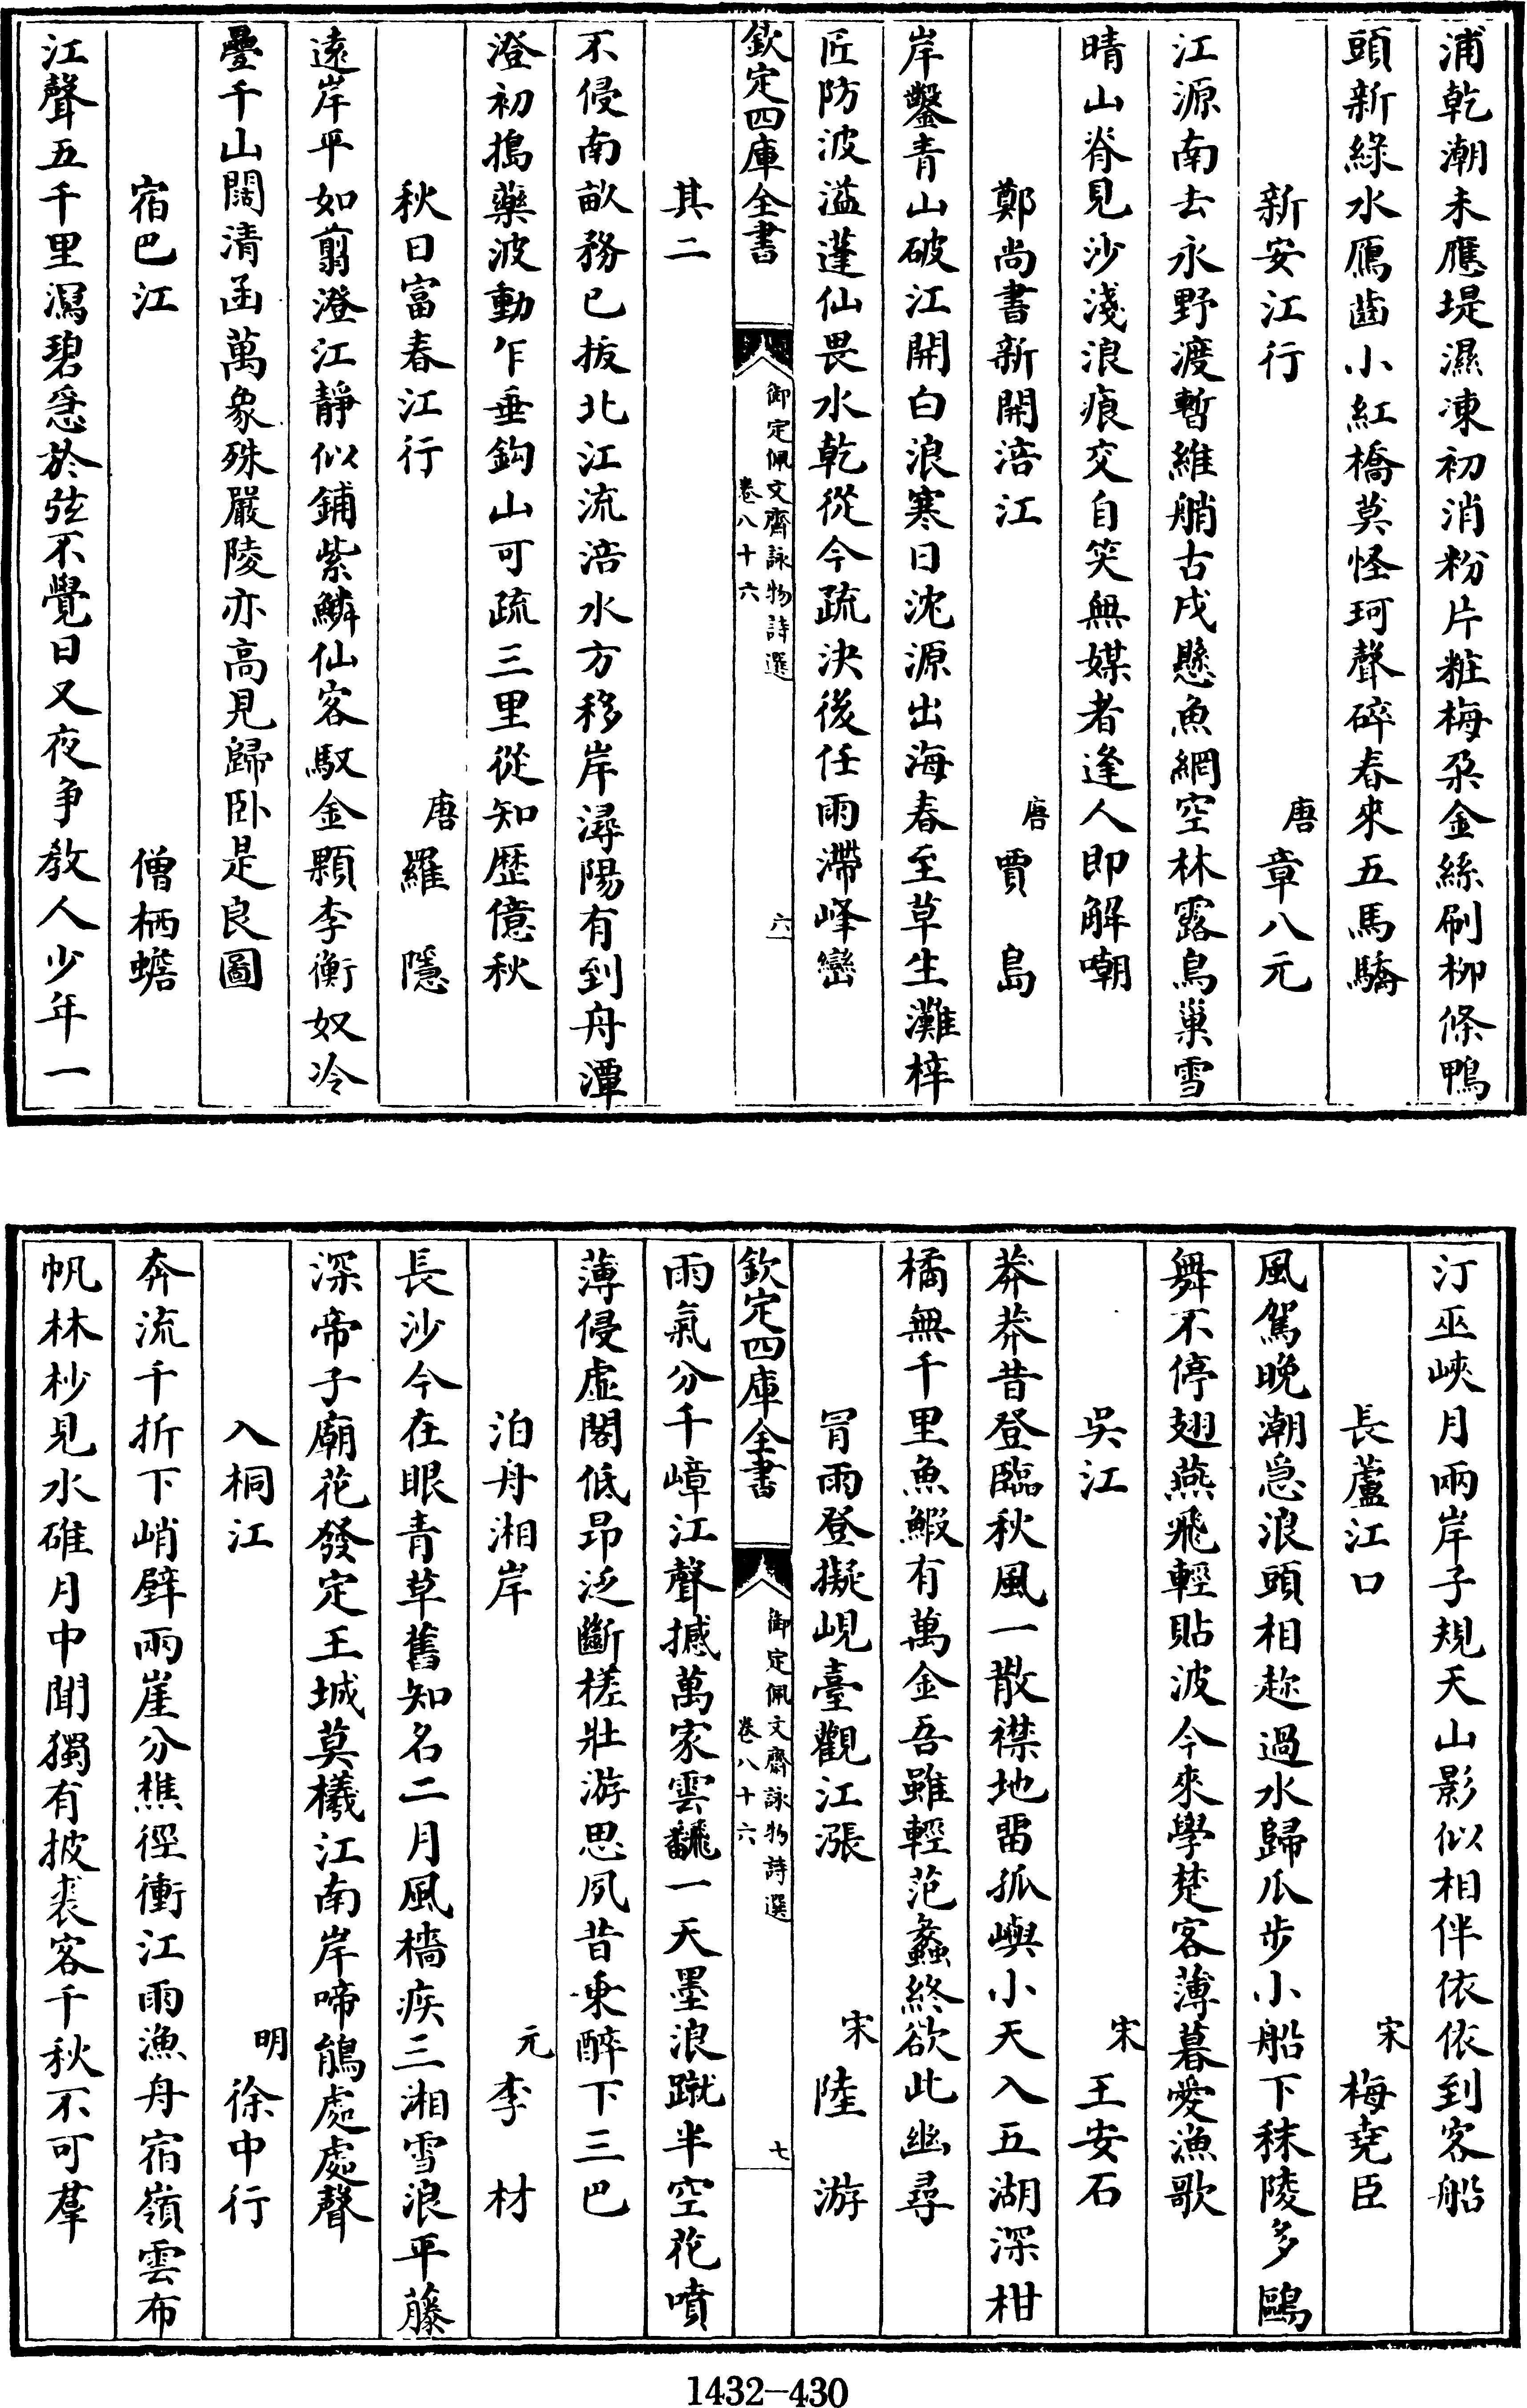 浦乾潮未應堤濕凍初消粉片粧梅朶金絲刷柳條鴨
頭新綠水鴈齒小紅橋莫怪珂聲碎春來五馬驕
新安江行　唐章八元
江源南去永野渡暫維艄古戍懸魚網空林露鳥巢雪
晴山脊見沙淺浪痕交自笑無媒者逢人即解嘲
鄭尚書新開涪江　唐賈島
岸鑿青山破江開白浪寒日沈源出海春至草生灘梓
匠防波溢蓬仙畏水乾從今疏決後任雨滯峰巒
欽定四庫全書　御定佩文齋詠物詩選　卷八十六　六
其二
不侵南畝務已拔北江流涪水方移岸潯陽有到舟潭
澄初搗藥波動乍垂鈎山可疏三里從知歴億秋
秋日富春江行　唐羅隱
遠岸平如翦澄江靜似鋪紫鱗仙客馭金顆李衡奴冷
疊千山闊清函萬象殊嚴陵亦高見歸卧是良圖
宿巴江　僧栖蟾
江聲五千里瀉碧急於弦不覺日又夜争教人少年一
汀巫峽月兩岸子規天山影似相伴依依到客船
長蘆江口　宋梅堯臣
風駕晚潮急浪頭相趂過水歸瓜步小船下秣陵多鷗
舞不停翅燕飛輕貼波今來學楚客薄暮愛漁歌
吳江　宋王安石
莽莽昔登臨秋風一散襟地畱孤嶼小天入五湖深柑
橘無千里魚鰕有萬金吾雖輕范蠡終欲此幽尋
冐雨登擬峴臺觀江漲　宋陸游
欽定四庫全書　御定佩文齋詠物詩選　卷八十六　七
雨氣分千嶂江聲撼萬家雲飜一天墨浪蹴半空花噴
薄侵虛閣低昂泛斷槎壯游思夙昔乗醉下三巴
泊舟湘岸　元李材
長沙今在眼青草舊知名二月風檣疾三湘雪浪平藤
深帝子廟花發定王城莫檥江南岸啼鵑處處聲
入桐江　明徐中行
奔流千折下峭壁兩崖分樵徑衝江雨漁舟宿嶺雲布
帆林杪見水碓月中聞獨有披裘客千秋不可羣
1432-430